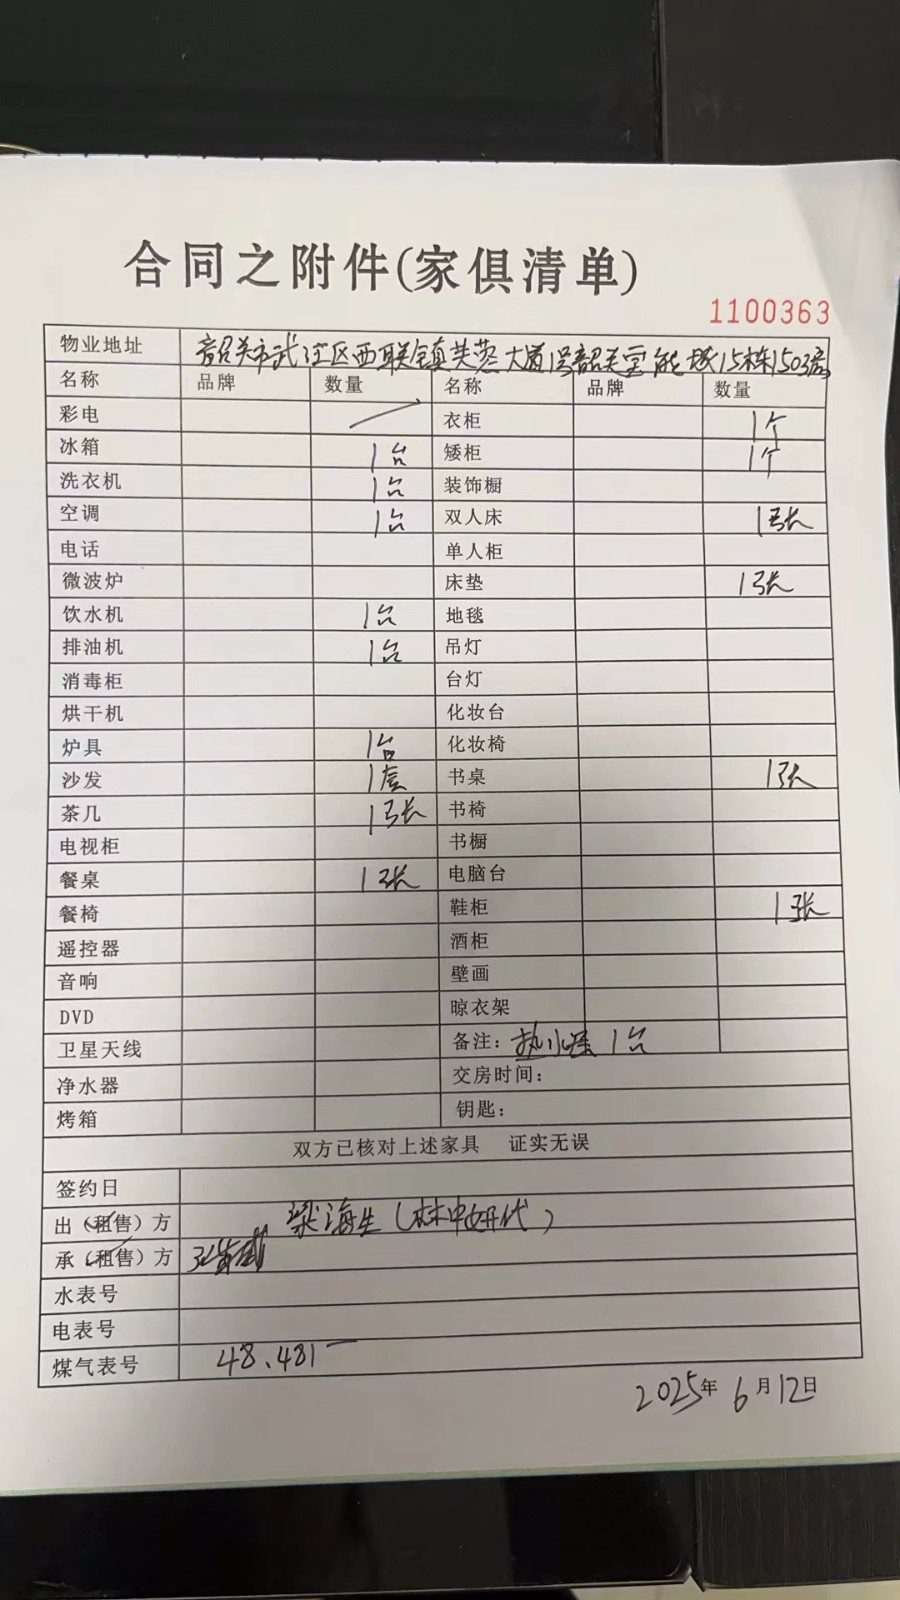 合同之附件(家俱清单)
1100363
物业地址 韶关市武江区西联镇芙蓉大道1号韶关宝能城15栋1503房
名称 品牌 数量 名称 品牌 数量
彩电 衣柜 1个
冰箱 1台 矮柜 1个
洗衣机 1台 装饰橱
空调 1台 双人床 1张
电话 单人柜
微波炉 床垫 1张
饮水机 1台 地毯
排油机 1台 吊灯
消毒柜 台灯
烘干机 化妆台
炉具 1台 化妆椅
沙发 1套 书桌 1张
茶几 1张 书椅
电视柜 书橱
餐桌 1张 电脑台
餐椅 鞋柜 1张
遥控器 酒柜
音响 壁画
DVD 晾衣架
卫星天线 备注：热水器 1台
净水器 交房时间：
烤箱 钥匙：
双方已核对上述家具 证实无误
签约日
出（租售）方 梁海生（林中妍代）
承（租售）方
水表号
电表号
煤气表号 48.481
2025年 6月12日